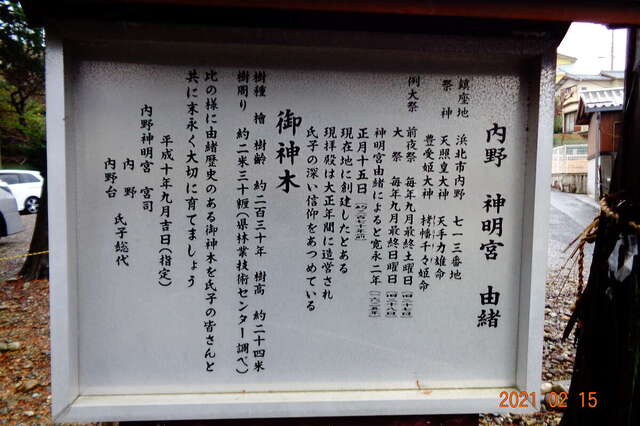 内野 神明宮 由緒
鎮座地 浜北市内野 七一三番地
祭神 天照皇大神 天手力雄命
豊受姫大神 栲幡千々姫命
例大祭 前夜祭 毎年九月最終土曜日
大祭 毎年九月最終日曜日
神明宮由緒によると寛永二年
正月十五日
現在地に創建したとある
現拝殿は大正年間に造営され
氏子の深い信仰をあつめている
御神木
樹種 檜 樹齢 約二百三十年 樹高 約二十四米
樹周り 約二米三十糎(県林業技術センター調べ)
此の様に由緒歴史のある御神木を氏子の皆さんと
共に末永く大切に育てましょう
平成十年九月吉日(指定)
内野神明宮 宮司
内野 氏子総代
内野台
2021 02 15